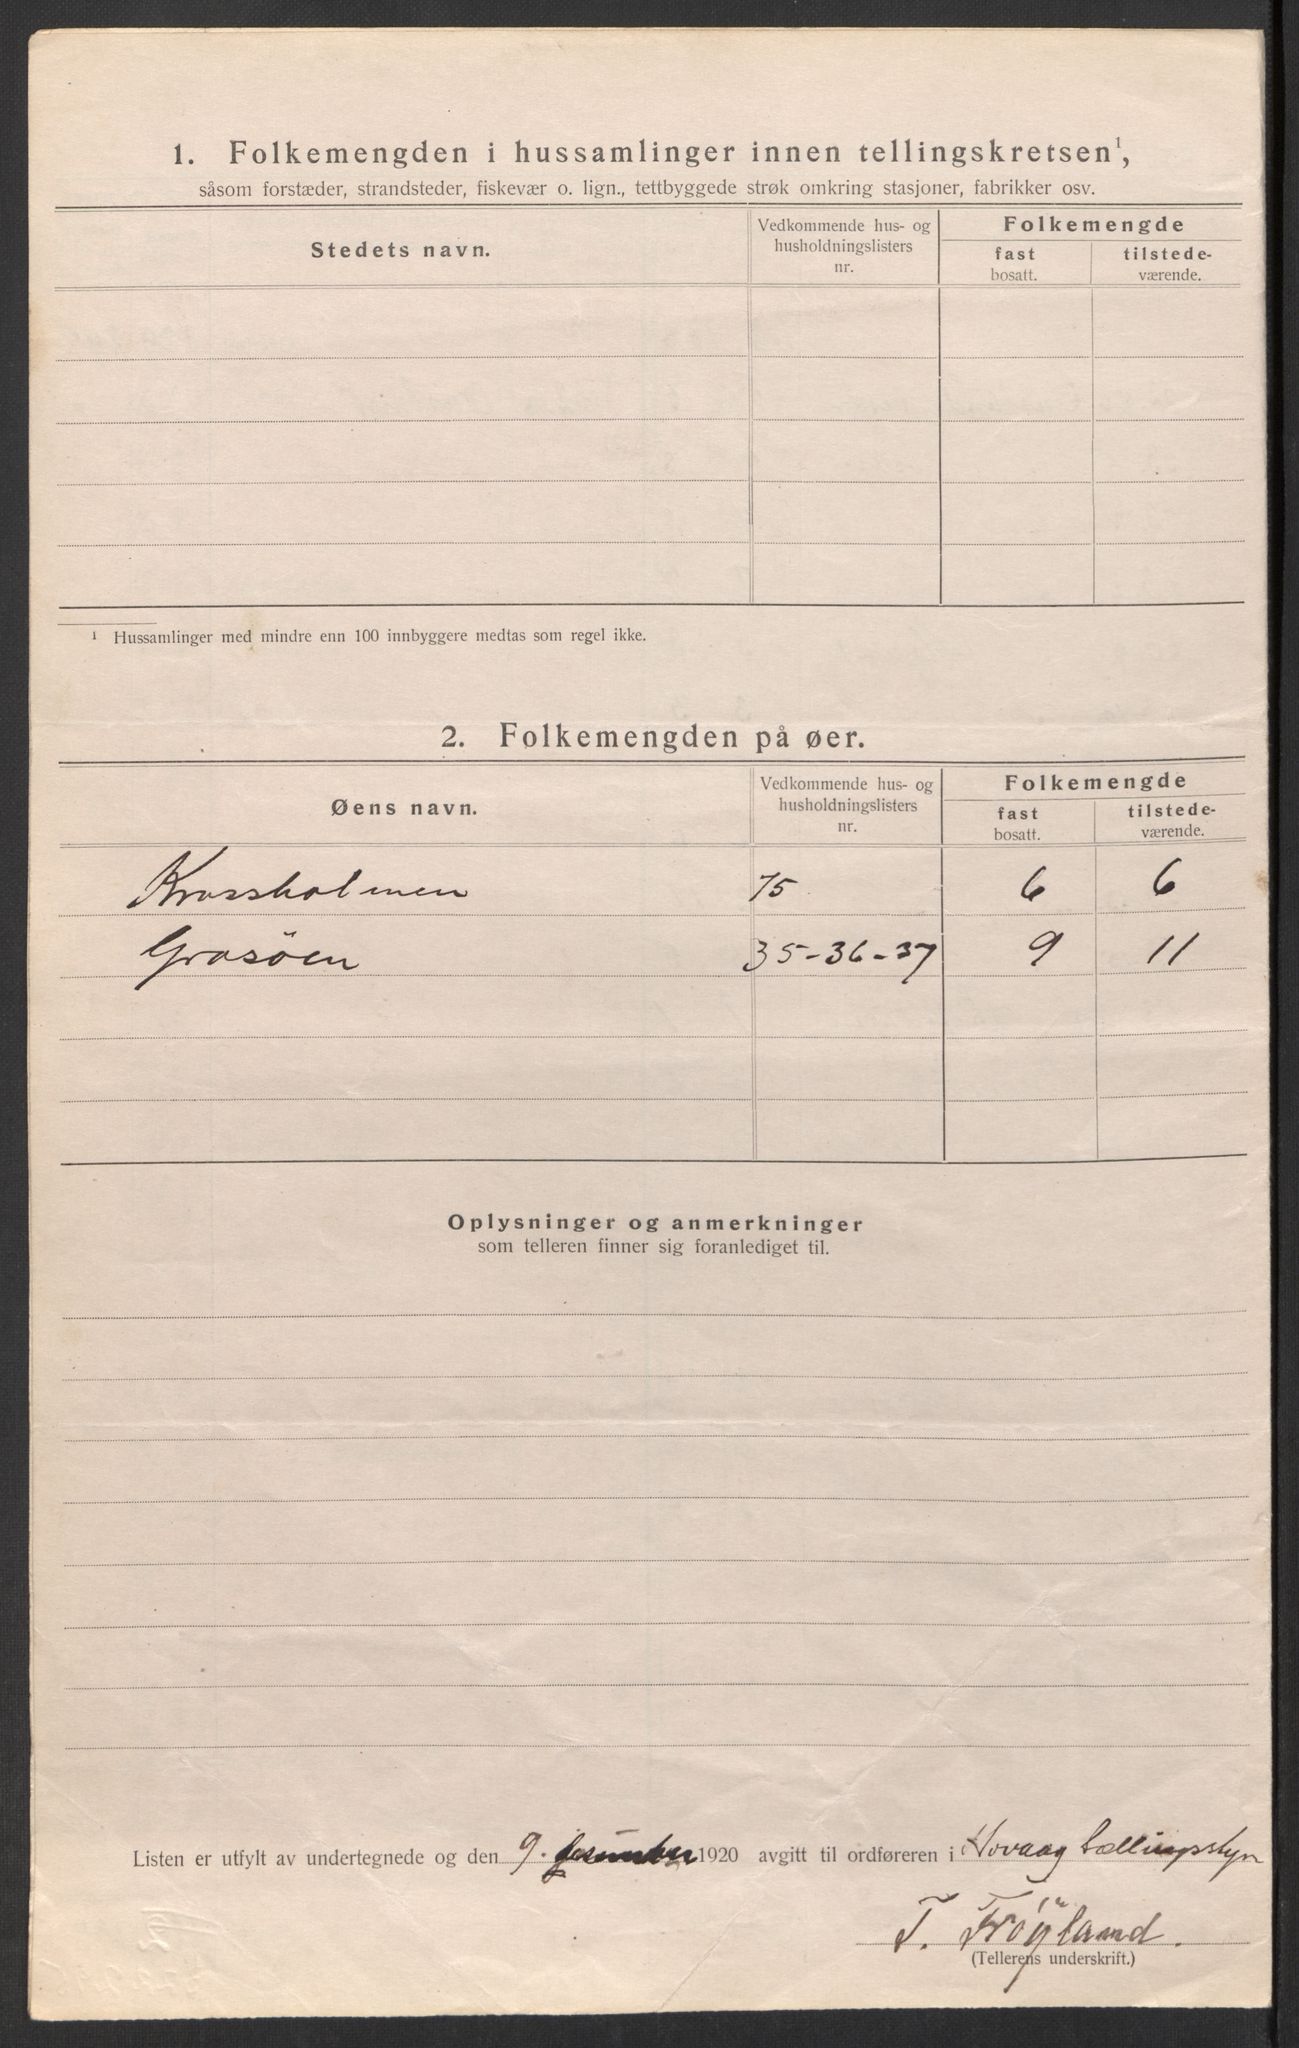 1. Folkemengden i hussamlinger innen tellingskretsen¹,
såsom forstæder, strandsteder, fiskevær o. lign., tettbyggede strøk omkring stasjoner, fabrikker osv.
Stedets navn.
Vedkommende hus- og
husholdningslisters
nr.
Folkemengde
fast
bosatt.
tilstede-
værende.
¹ Hussamlinger med mindre enn 100 innbyggere medtas som regel ikke.
2. Folkemengden på øer.
Øens navn.
Vedkommende hus- og
husholdningslisters
nr.
Folkemengde
fast
bosatt.
tilstede-
værende.
Krossholmen 75 6 6
Grasöen 35-36-37 9 11
Oplysninger og anmerkninger
som telleren finner sig foranlediget til.
Listen er utfylt av undertegnede og den 9. desember 1920 avgitt til ordføreren i Hovaag
T. Fröyland.
(Tellerens underskrift.)